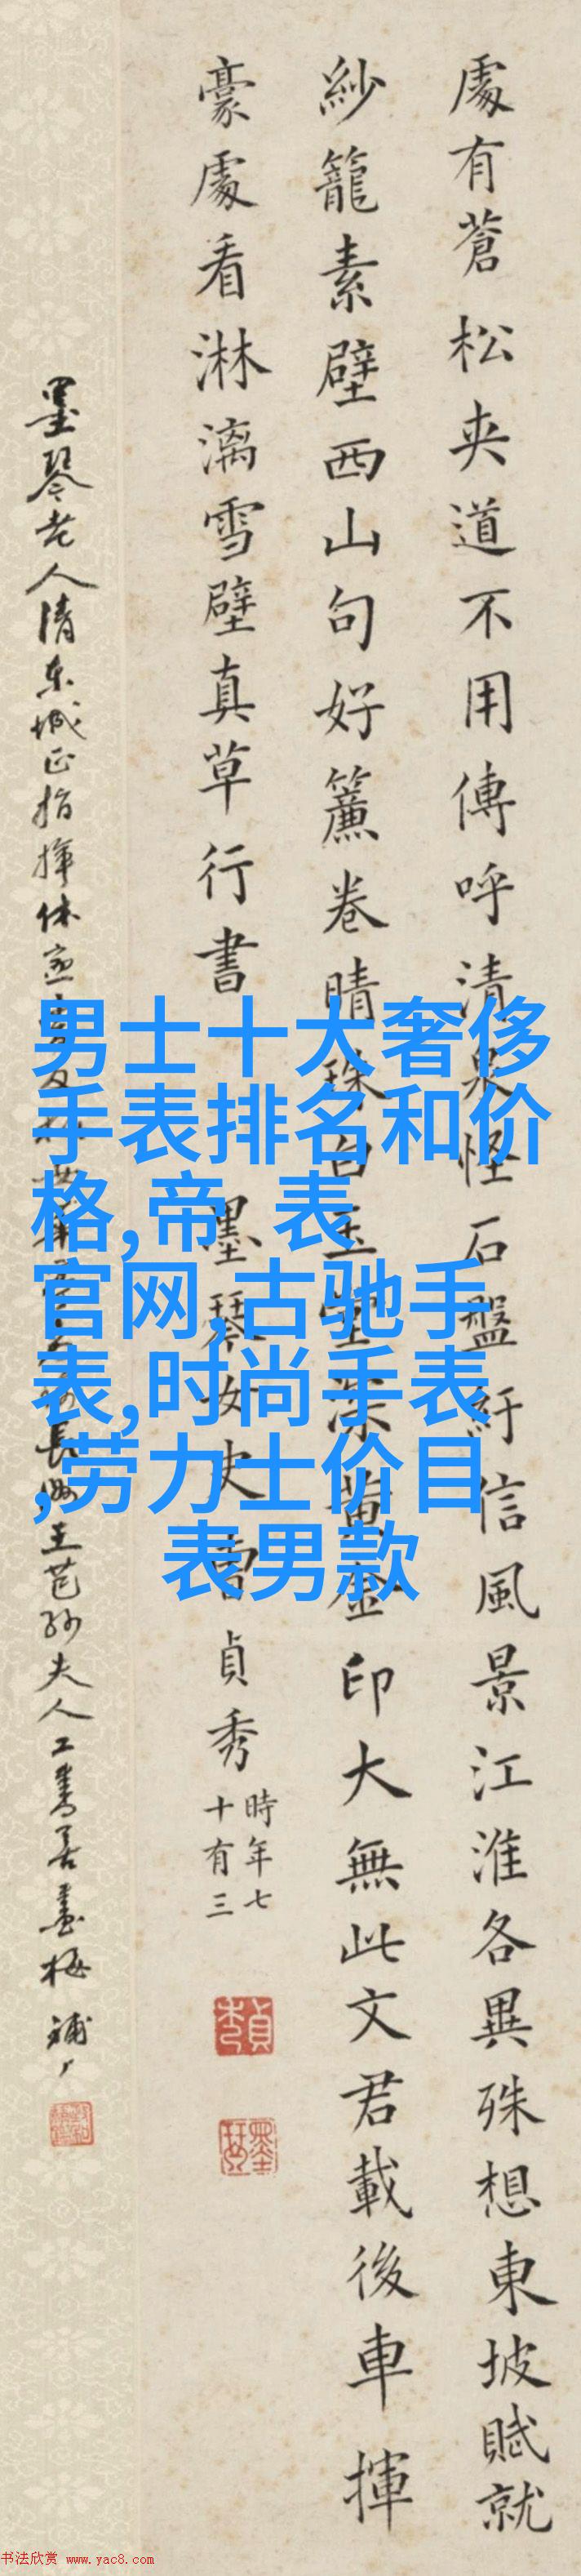 處有蒼松夾道不用傳呼清泉怪石盤紆信風景江淮各異殊想東坡賦就
紗籠素壁西山句好簾卷晴珠白玉堂深黃金印大無此文君載後車揮
豪處看淋漓雪壁真草行書
墨琴女史曹貞秀
時年七
十有三
貞秀
墨琴
墨琴老人清東城正指揮
長洲王芑孫夫人工書善畫梅
男士十大奢侈
手表排名和价
格,帝 表
官网,古驰手
表,时尚手表
,劳力士价目
表男款
书法欣赏 www.yac8.com